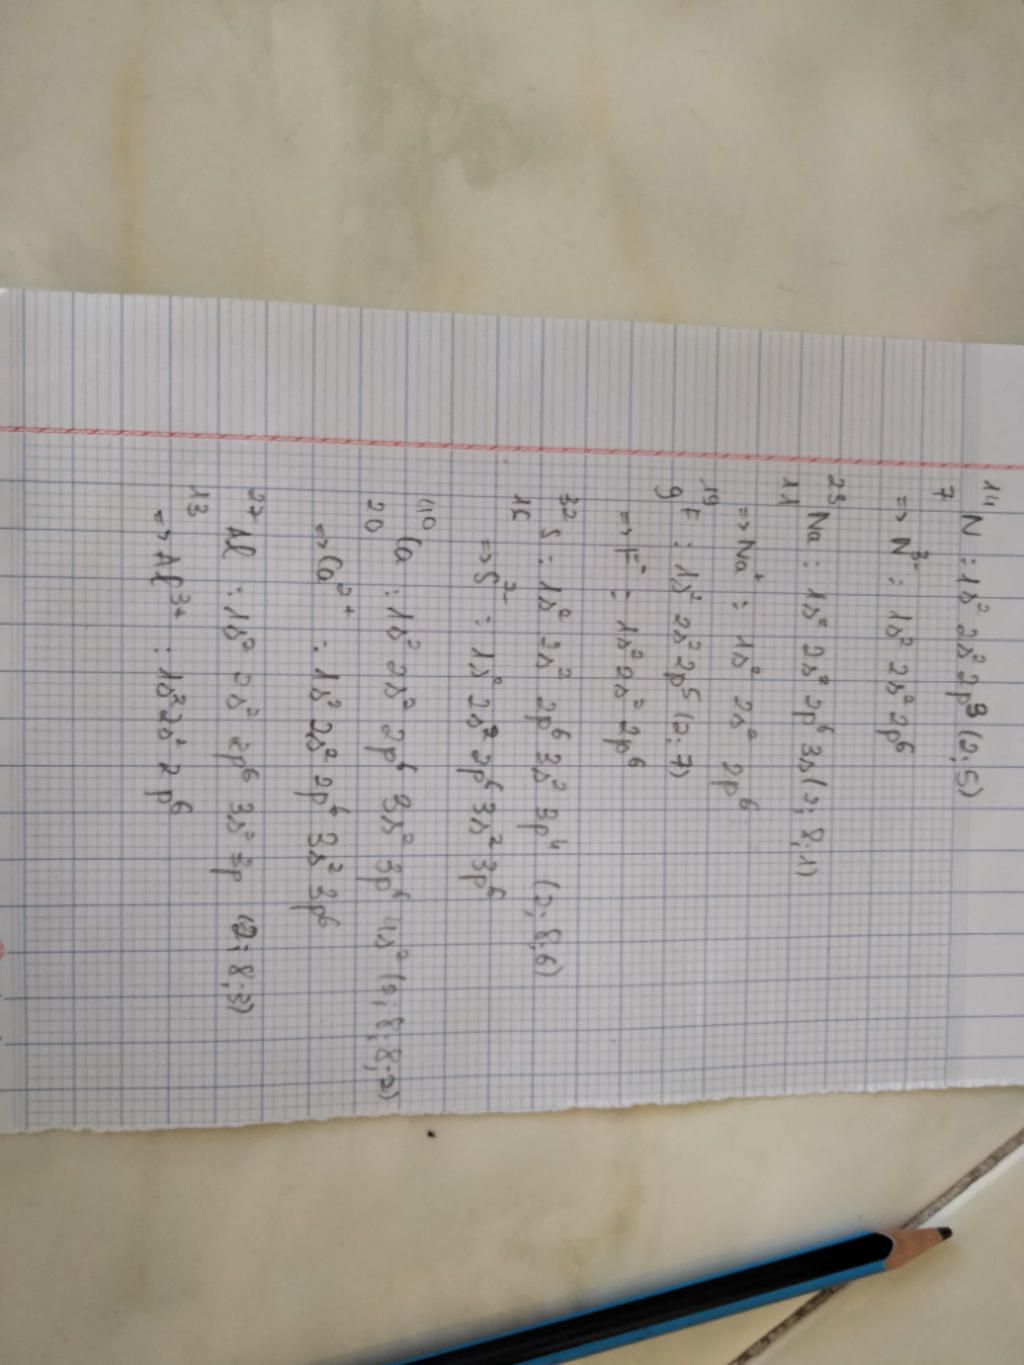 ¹⁴₇N : 1s² 2s² 2p³ (2,5)
=> N³⁻ : 1s² 2s² 2p⁶
²³₁₁Na : 1s² 2s² 2p⁶ 3s (2; 8,1)
=> Na⁺ : 1s² 2s² 2p⁶
¹⁹₉F : 1s² 2s² 2p⁵ (2,7)
=> F⁻ : 1s² 2s² 2p⁶
³²₁₆S : 1s² 2s² 2p⁶ 3s² 3p⁴ (2; 8,6)
=> S²⁻ : 1s² 2s² 2p⁶ 3s² 3p⁶
⁴⁰₂₀Ca : 1s² 2s² 2p⁶ 3s² 3p⁶ 4s² (2; 8; 8,2)
=> Ca²⁺ : 1s² 2s² 2p⁶ 3s² 3p⁶
²⁷₁₃Al : 1s² 2s² 2p⁶ 3s² 3p (2; 8,3)
=> Al³⁺ : 1s² 2s² 2p⁶